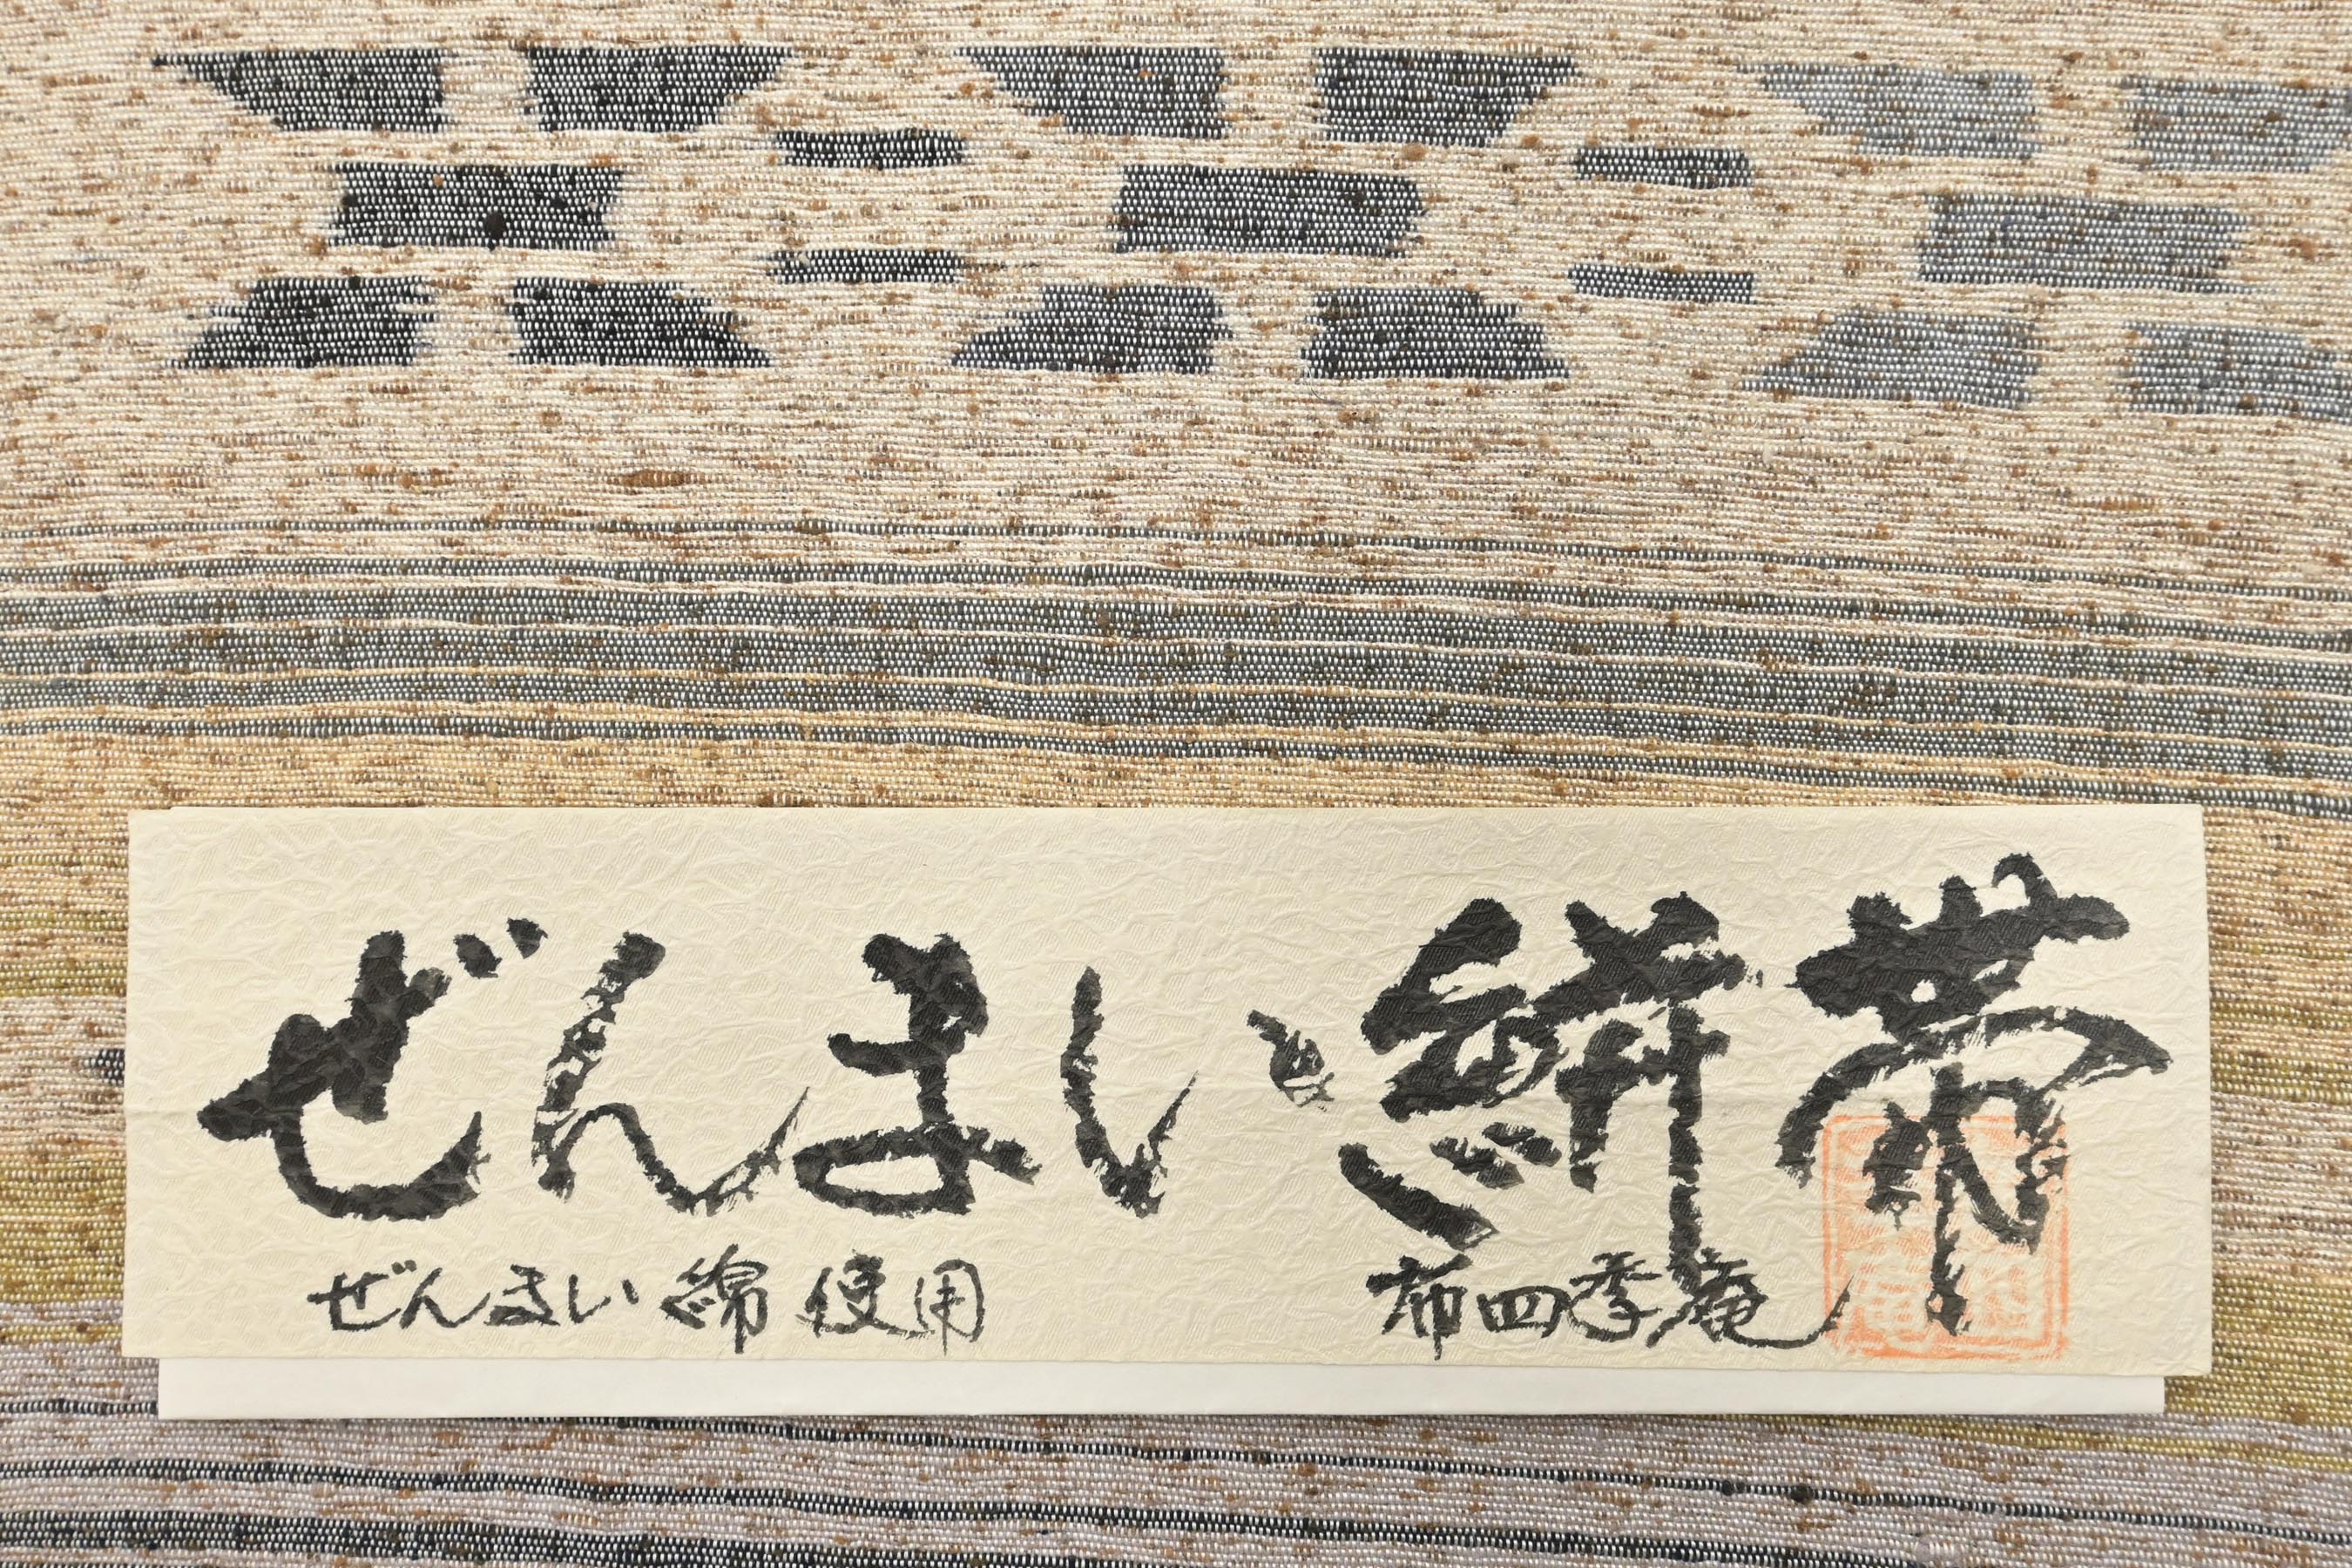 ぜんまい絣帯
ぜんまい綿使用 布四季庵